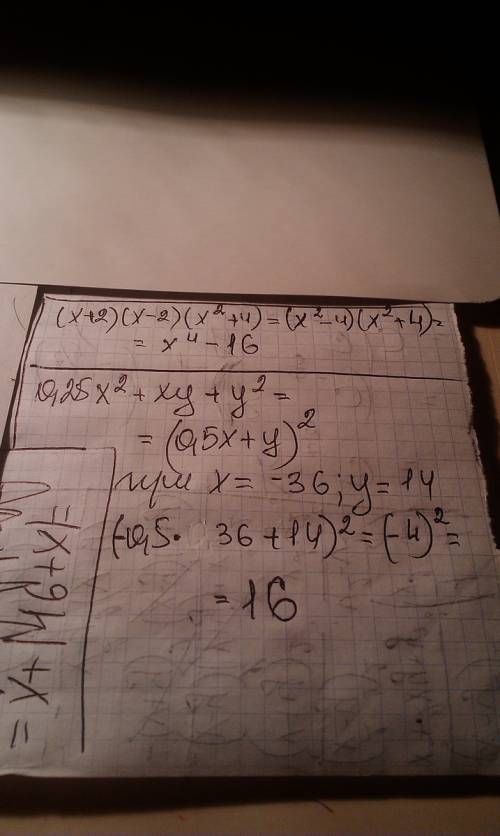 (x+2)(x-2)(x²+4)=(x²-4)(x²+4)=
= x⁴-16
0,25x²+xy+y²=
=(0,5x+y)²
при x=-36; y=14
(-0,5· 36+14)²=(-4)²=
=16